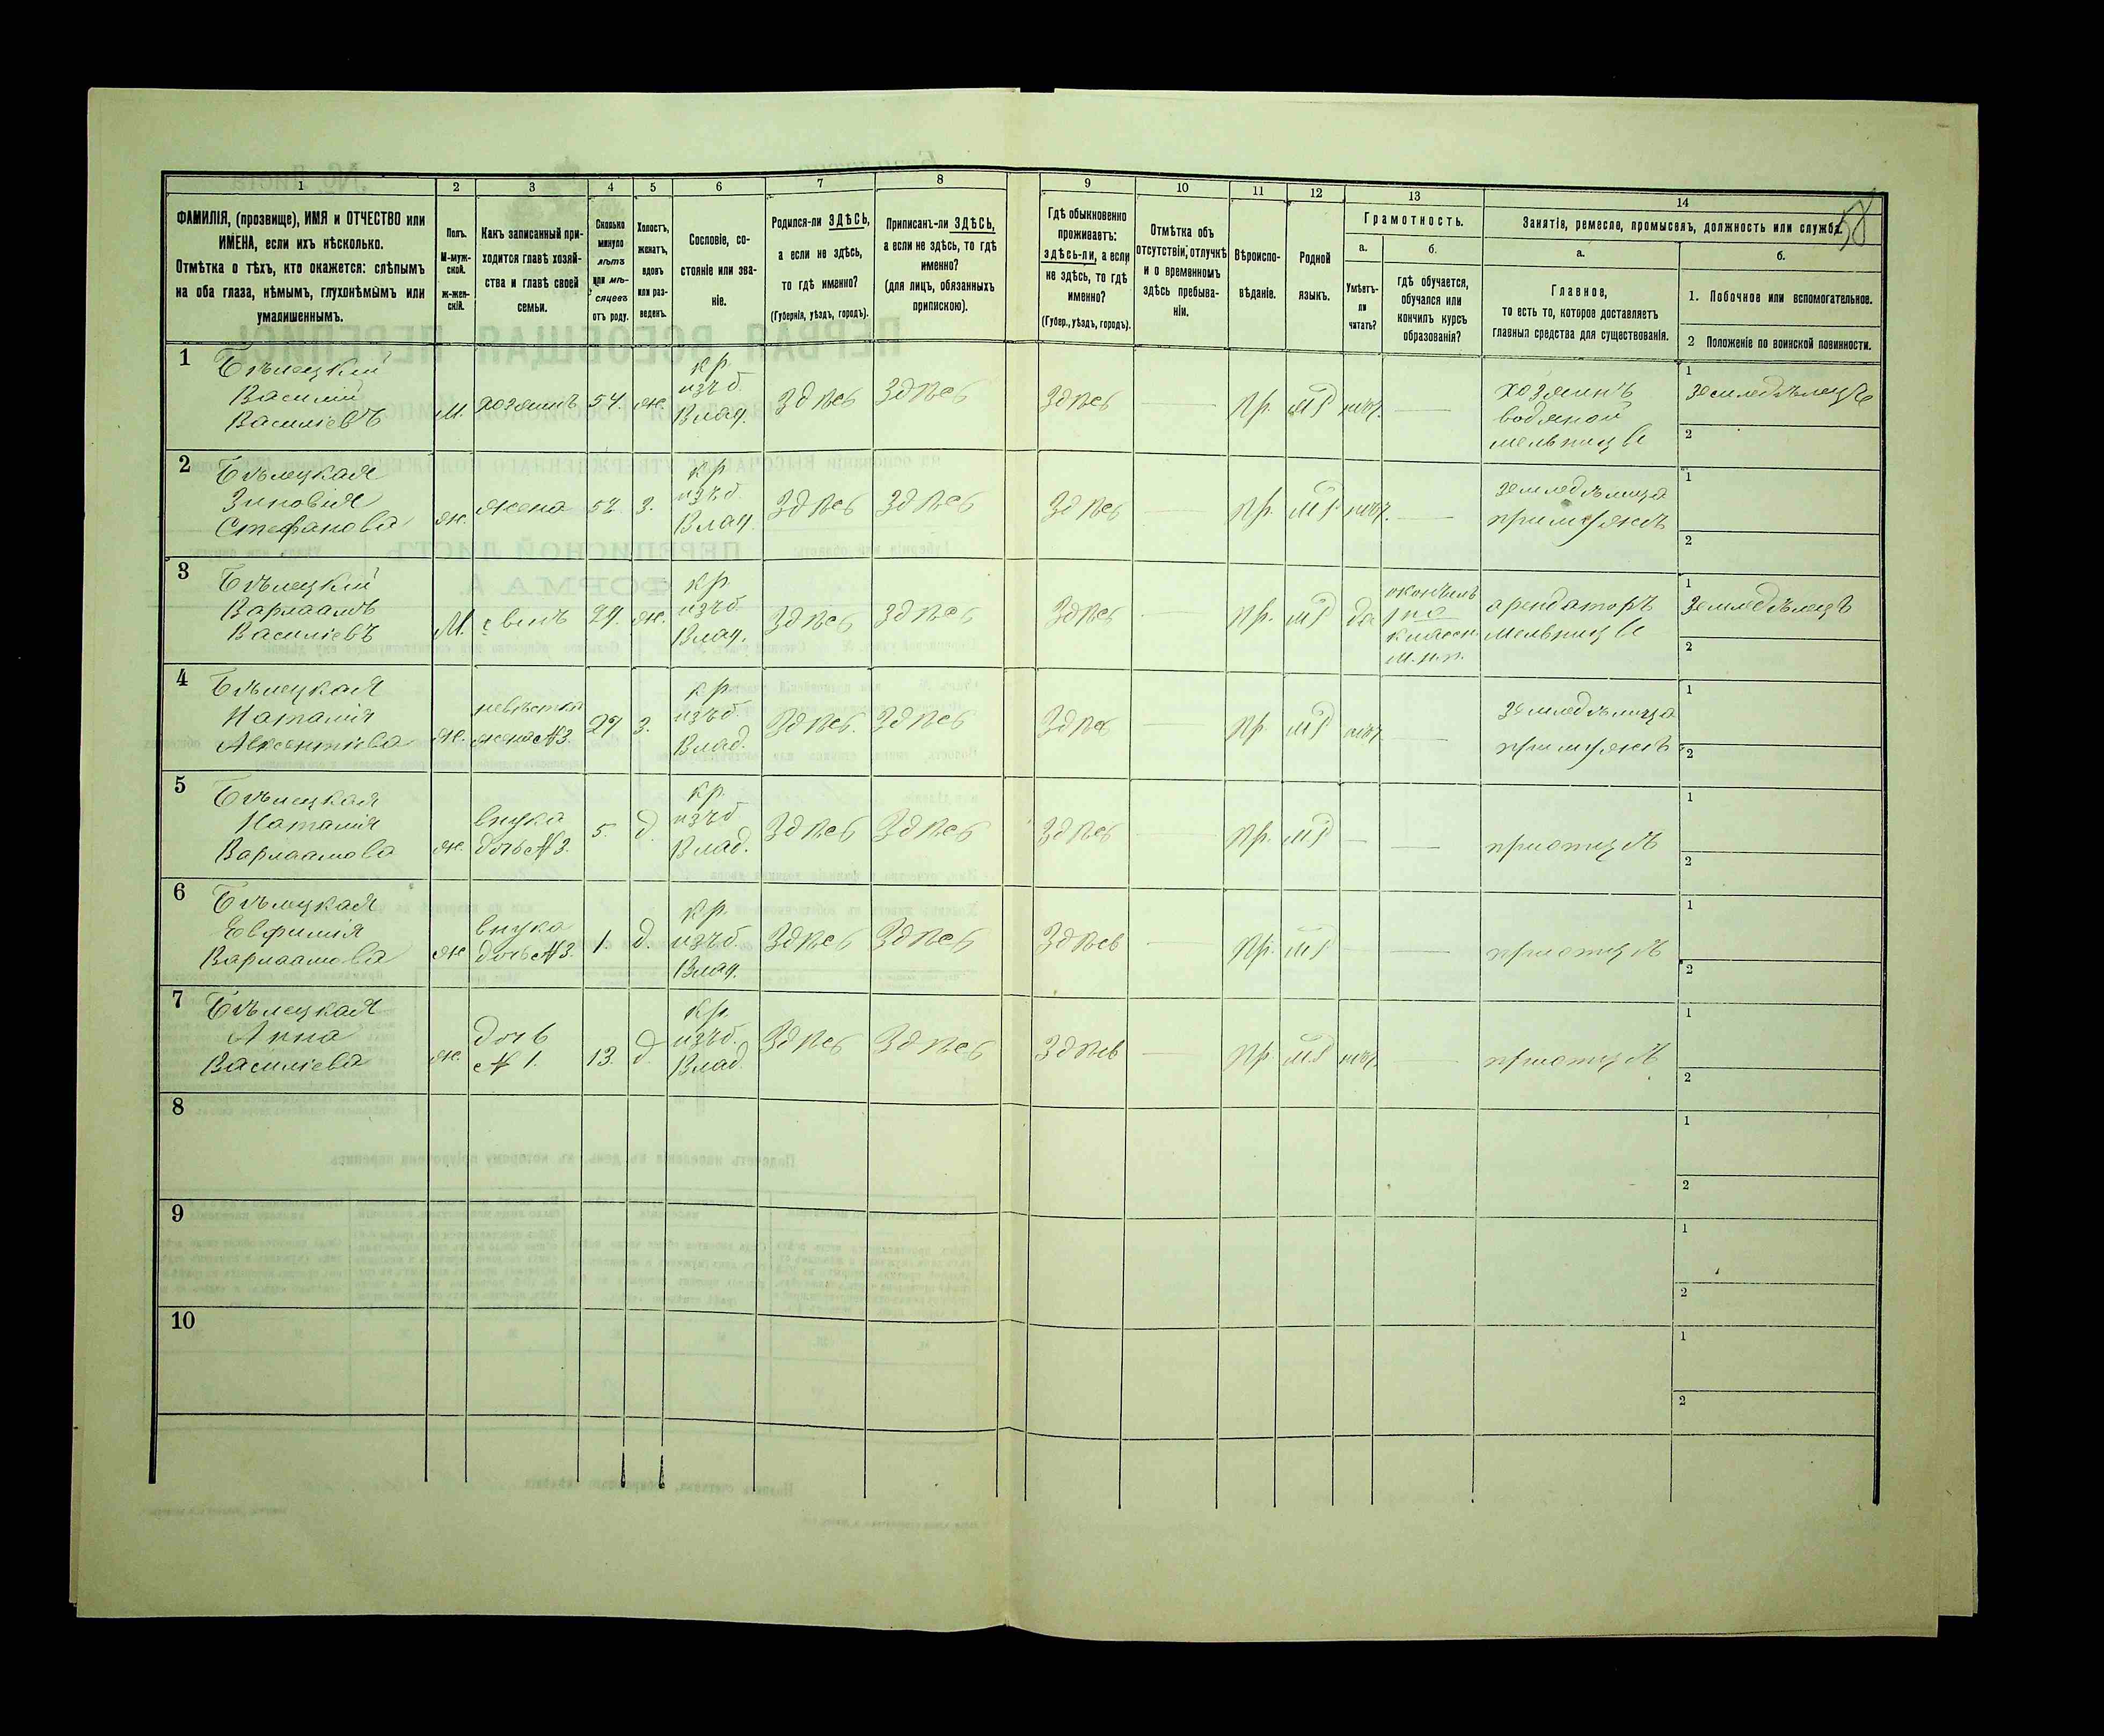 58
1 2 3 4 5 6 7 8 9 10 11 12 13 14
ФАМИЛІЯ, (прозвище), ИМЯ и ОТЧЕСТВО или
ИМЕНА, если ихъ нѣсколько.
Отмѣтка о тѣхъ, кто окажется: слѣпымъ
на оба глаза, нѣмымъ, глухонѣмымъ или
умалишеннымъ.
Полъ.
М-муж-
ской.
ж-жен-
скій.
Какъ записанный при-
ходится главѣ хозяй-
ства и главѣ своей
семьи.
Сколько
минуло
лѣтъ
или мѣ-
сяцевъ
отъ роду.
Холостъ,
женатъ,
вдовъ
или раз-
веденъ.
Сословіе, со-
стояніе или зва-
ніе.
Родился-ли ЗДѢСЬ,
а если не здѣсь,
то гдѣ именно?
(Губернія, уѣздъ, городъ).
Приписанъ-ли ЗДѢСЬ,
а если не здѣсь, то гдѣ
именно?
(для лицъ, обязанныхъ
припискою).
Гдѣ обыкновенно
проживаетъ:
здѣсь-ли, а если
не здѣсь, то гдѣ
именно?
(Губер., уѣздъ, городъ).
Отмѣтка объ
отсутствіи, отлучкѣ
и о временномъ
здѣсь пребыва-
ніи.
Вѣроиспо-
вѣданіе.
Родной
языкъ.
Грамотность.
а.
Умѣетъ-
ли
читать?
б.
гдѣ обучается,
обучался или
кончилъ курсъ
образованія?
Занятіе, ремесло, промыселъ, должность или служба.
а.
Главное,
то есть то, которое доставляетъ
главныя средства для существованія.
б.
1. Побочное или вспомогательное.
2 Положеніе по воинской повинности.
1 Бѣлецкій
Василій
Василіевъ
м. хозяинъ 54. ж.
кр.
изъ б.
Влад.
Здѣсь Здѣсь Здѣсь — Пр. мр нѣт. —
хозяинъ
водяной
мельницы
1 земледѣлецъ
2
2 Бѣлецкая
Зиновія
Стефанова
ж. жена 52 з.
кр
изъ б.
Влад.
Здѣсь Здѣсь Здѣсь — Пр. мр нѣт. —
земледѣлица
при мужѣ
1
2
3 Бѣлецкій
Варлаамъ
Василіевъ
М. сынъ 29. ж.
кр.
изъ б.
Влад.
Здѣсь Здѣсь Здѣсь — Пр. мр да
окончилъ
классн.
м.н.п.
арендаторъ
мельницы
1 земледѣлецъ
2
4 Бѣлецкая
Наталія
Авксентіева
ж.
невѣстка
жена №3.
27 з.
кр.
изъ б.
Влад.
Здѣсь. Здѣсь Здѣсь — Пр. мр нѣт. —
земледѣлица
при мужѣ
1
2
5 Бѣлецкая
Наталія
Варлаамова
ж.
внука
дочь №3.
5. д.
кр.
изъ б
Влад.
Здѣсь Здѣсь Здѣсь — Пр. мр — —
при отцѣ
1
2
6 Бѣлецкая
Евфимія
Варлаамова
ж
внука
дочь №3.
1. д.
кр.
изъ б.
Влад.
Здѣсь Здѣсь Здѣсь — Пр. мр — —
при отцѣ
1
2
7 Бѣлецкая
Анна
Василіева
ж.
дочь
№ 1.
13. д.
кр.
изъ б.
Влад.
Здѣсь Здѣсь Здѣсь — Пр мр нѣт. —
при отцѣ
1
2
8
1
2
9
1
2
10
1
2